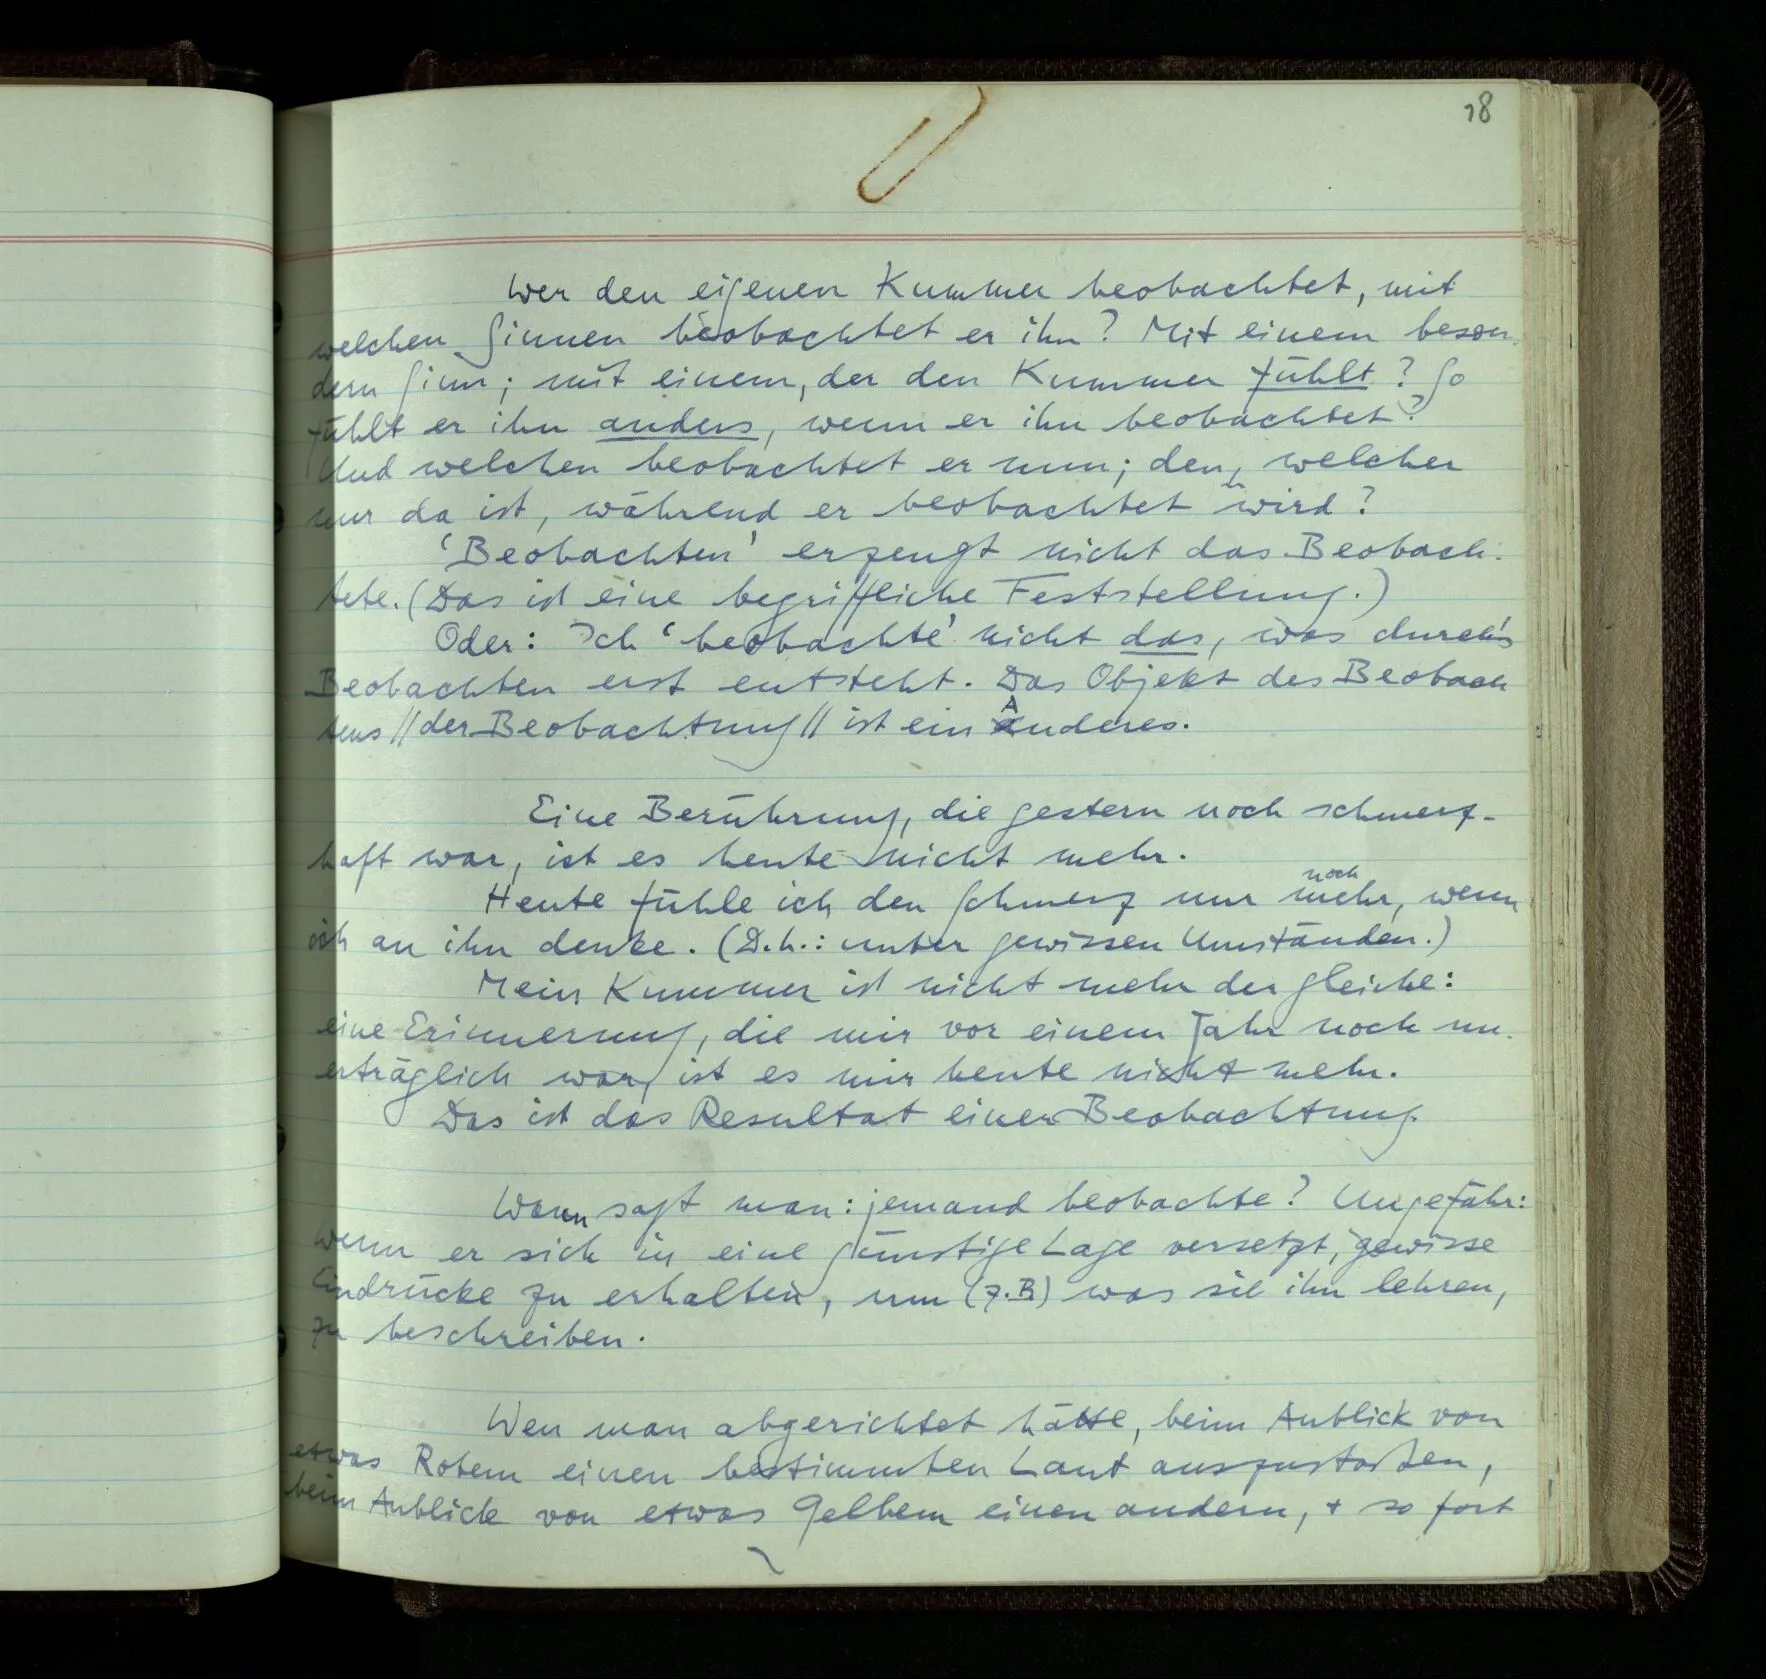 18
Wer den eigenen Kummer beobachtet, mit
welchen Sinnen beobachtet er ihn? Mit einem beson-
dern Sinn; mit einem, der den Kummer fühlt? So
fühlt er ihn anders, wenn er ihn beobachtet?
Und welchen beobachtet er nun; den, welcher
nur da ist, während er beobachtet wird?
'Beobachten' erzeugt nicht das Beobach-
tete. (Das ist eine begriffliche Feststellung.)
Oder: Ich 'beobachte' nicht das, was durch's
Beobachten erst entsteht. Das Objekt des Beobach
tens // der Beobachtung // ist ein Anderes.
Eine Berührung, die gestern noch schmerz-
haft war, ist es heute nicht mehr.
noch
Heute fühle ich den Schmerz nur mehr, wenn
ich an ihn denke. (D.h.: unter gewissen Umständen.)
Mein Kummer ist nicht mehr der gleiche:
eine Erinnerung, die mir vor einem Jahr noch un-
erträglich war, ist es mir heute nicht mehr.
Das ist das Resultat einer Beobachtung.
Wann sagt man: jemand beobachte? Ungefähr:
wenn er sich in eine günstige Lage versetzt, gewisse
Eindrücke zu erhalten, um (z.B.) was sie ihn lehren,
zu beschreiben.
Wen man abgerichtet hätte, beim Anblick von
etwas Rotem einen bestimmten Laut auszustoßen,
beim Anblick von etwas Gelbem einen andern, + so fort